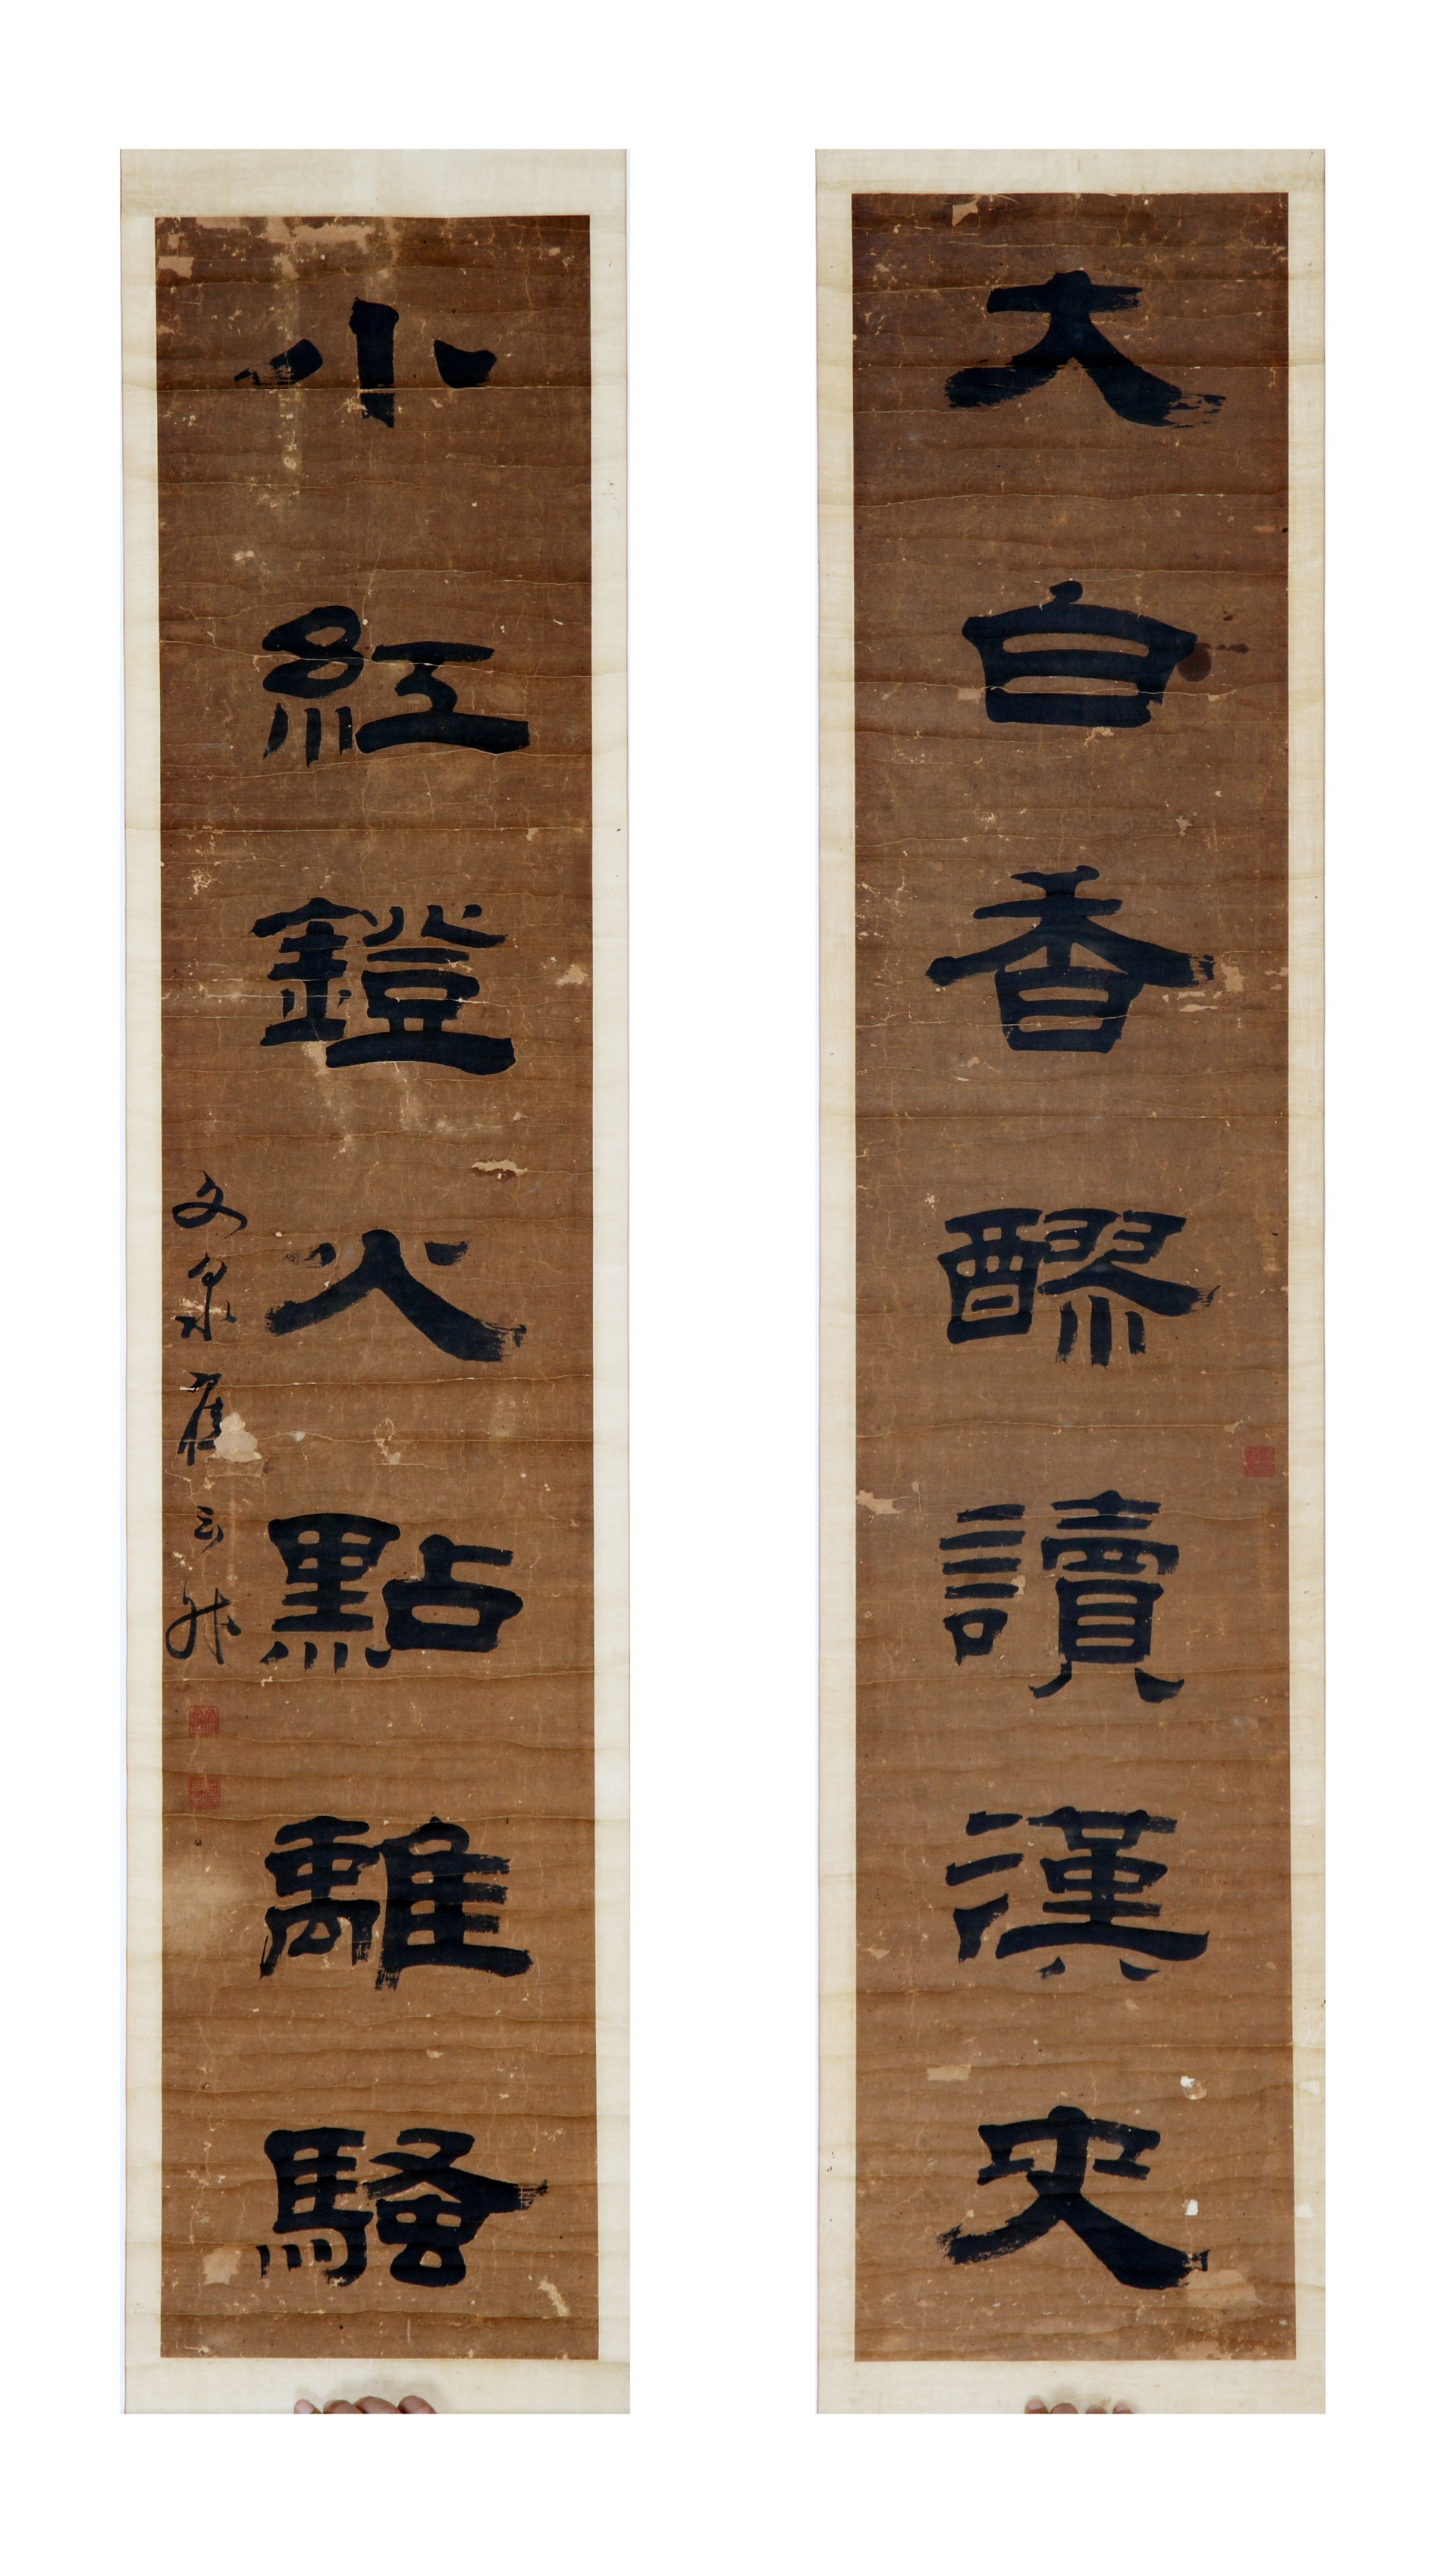 大白香醪讀漢史
小紅鐙火點離騷
文泉崔